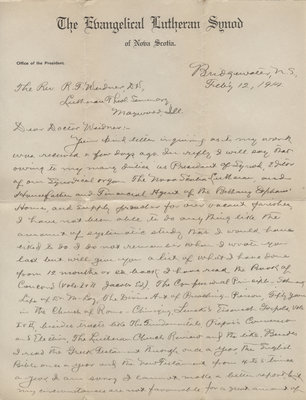 The Evangelical Lutheran Synod
of Nova Scotia.
Office of the President.
Bridgewater, N.S.
Feby 12, 19
The Rev. R. F. Weidner, D.D.,
Lutheran Theol. Seminary
Maywood, Ill.
Dear Doctor Weidner:-
Your kind letter inquiring as to my work
was received a few days ago. In reply I will say that
owing to my many duties as President of Synod, Editor
of our Synodical organ The Nova Scotia Lutheran and
and Financial Agent of the Orphans'
Home, and supply pastor for our vacant parishes,
I have not been able to do anything like the
amount of systematic study that I would have
liked to do. I do not remember when I wrote you
last but will give you a list of what I have done
for 12 months or at least. I have read the Book of
Concord (Vols. I & II Jacobs Ed). The Conservative
Life of Dr. the Divine Art of Preaching. Fifty Years
in the Church of Rome - Chiniquy,
besides tracts like the Fundamental
and Election, The Lutheran Church Review and the like. Besides
I read the Greek Testament through once a year the English
Bible once a year and the New Testament from 4 to 5 times
a year. I am sorry I cannot make a better report but
my circumstances are not favorable for a great amount of